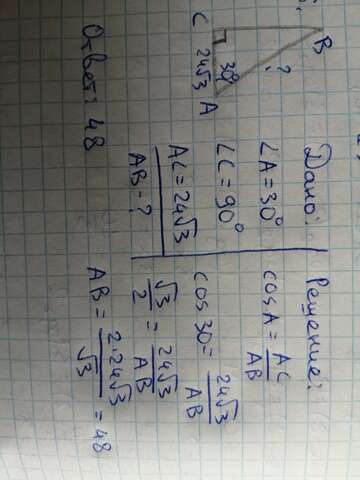 C
B
A
24√3
30°
?
Дано:
∠A = 30°
∠C = 90°
AC = 24√3
AB - ?
Решение:
cos A = AC/AB
cos 30 = 24√3/AB
√3/2 = 24√3/AB
AB = 2·24√3/√3 = 48
Ответ: 48